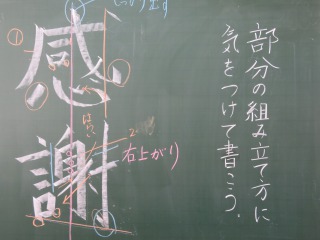 部分の組み立て方に
気をつけて書こう。
感謝
①
右上がり